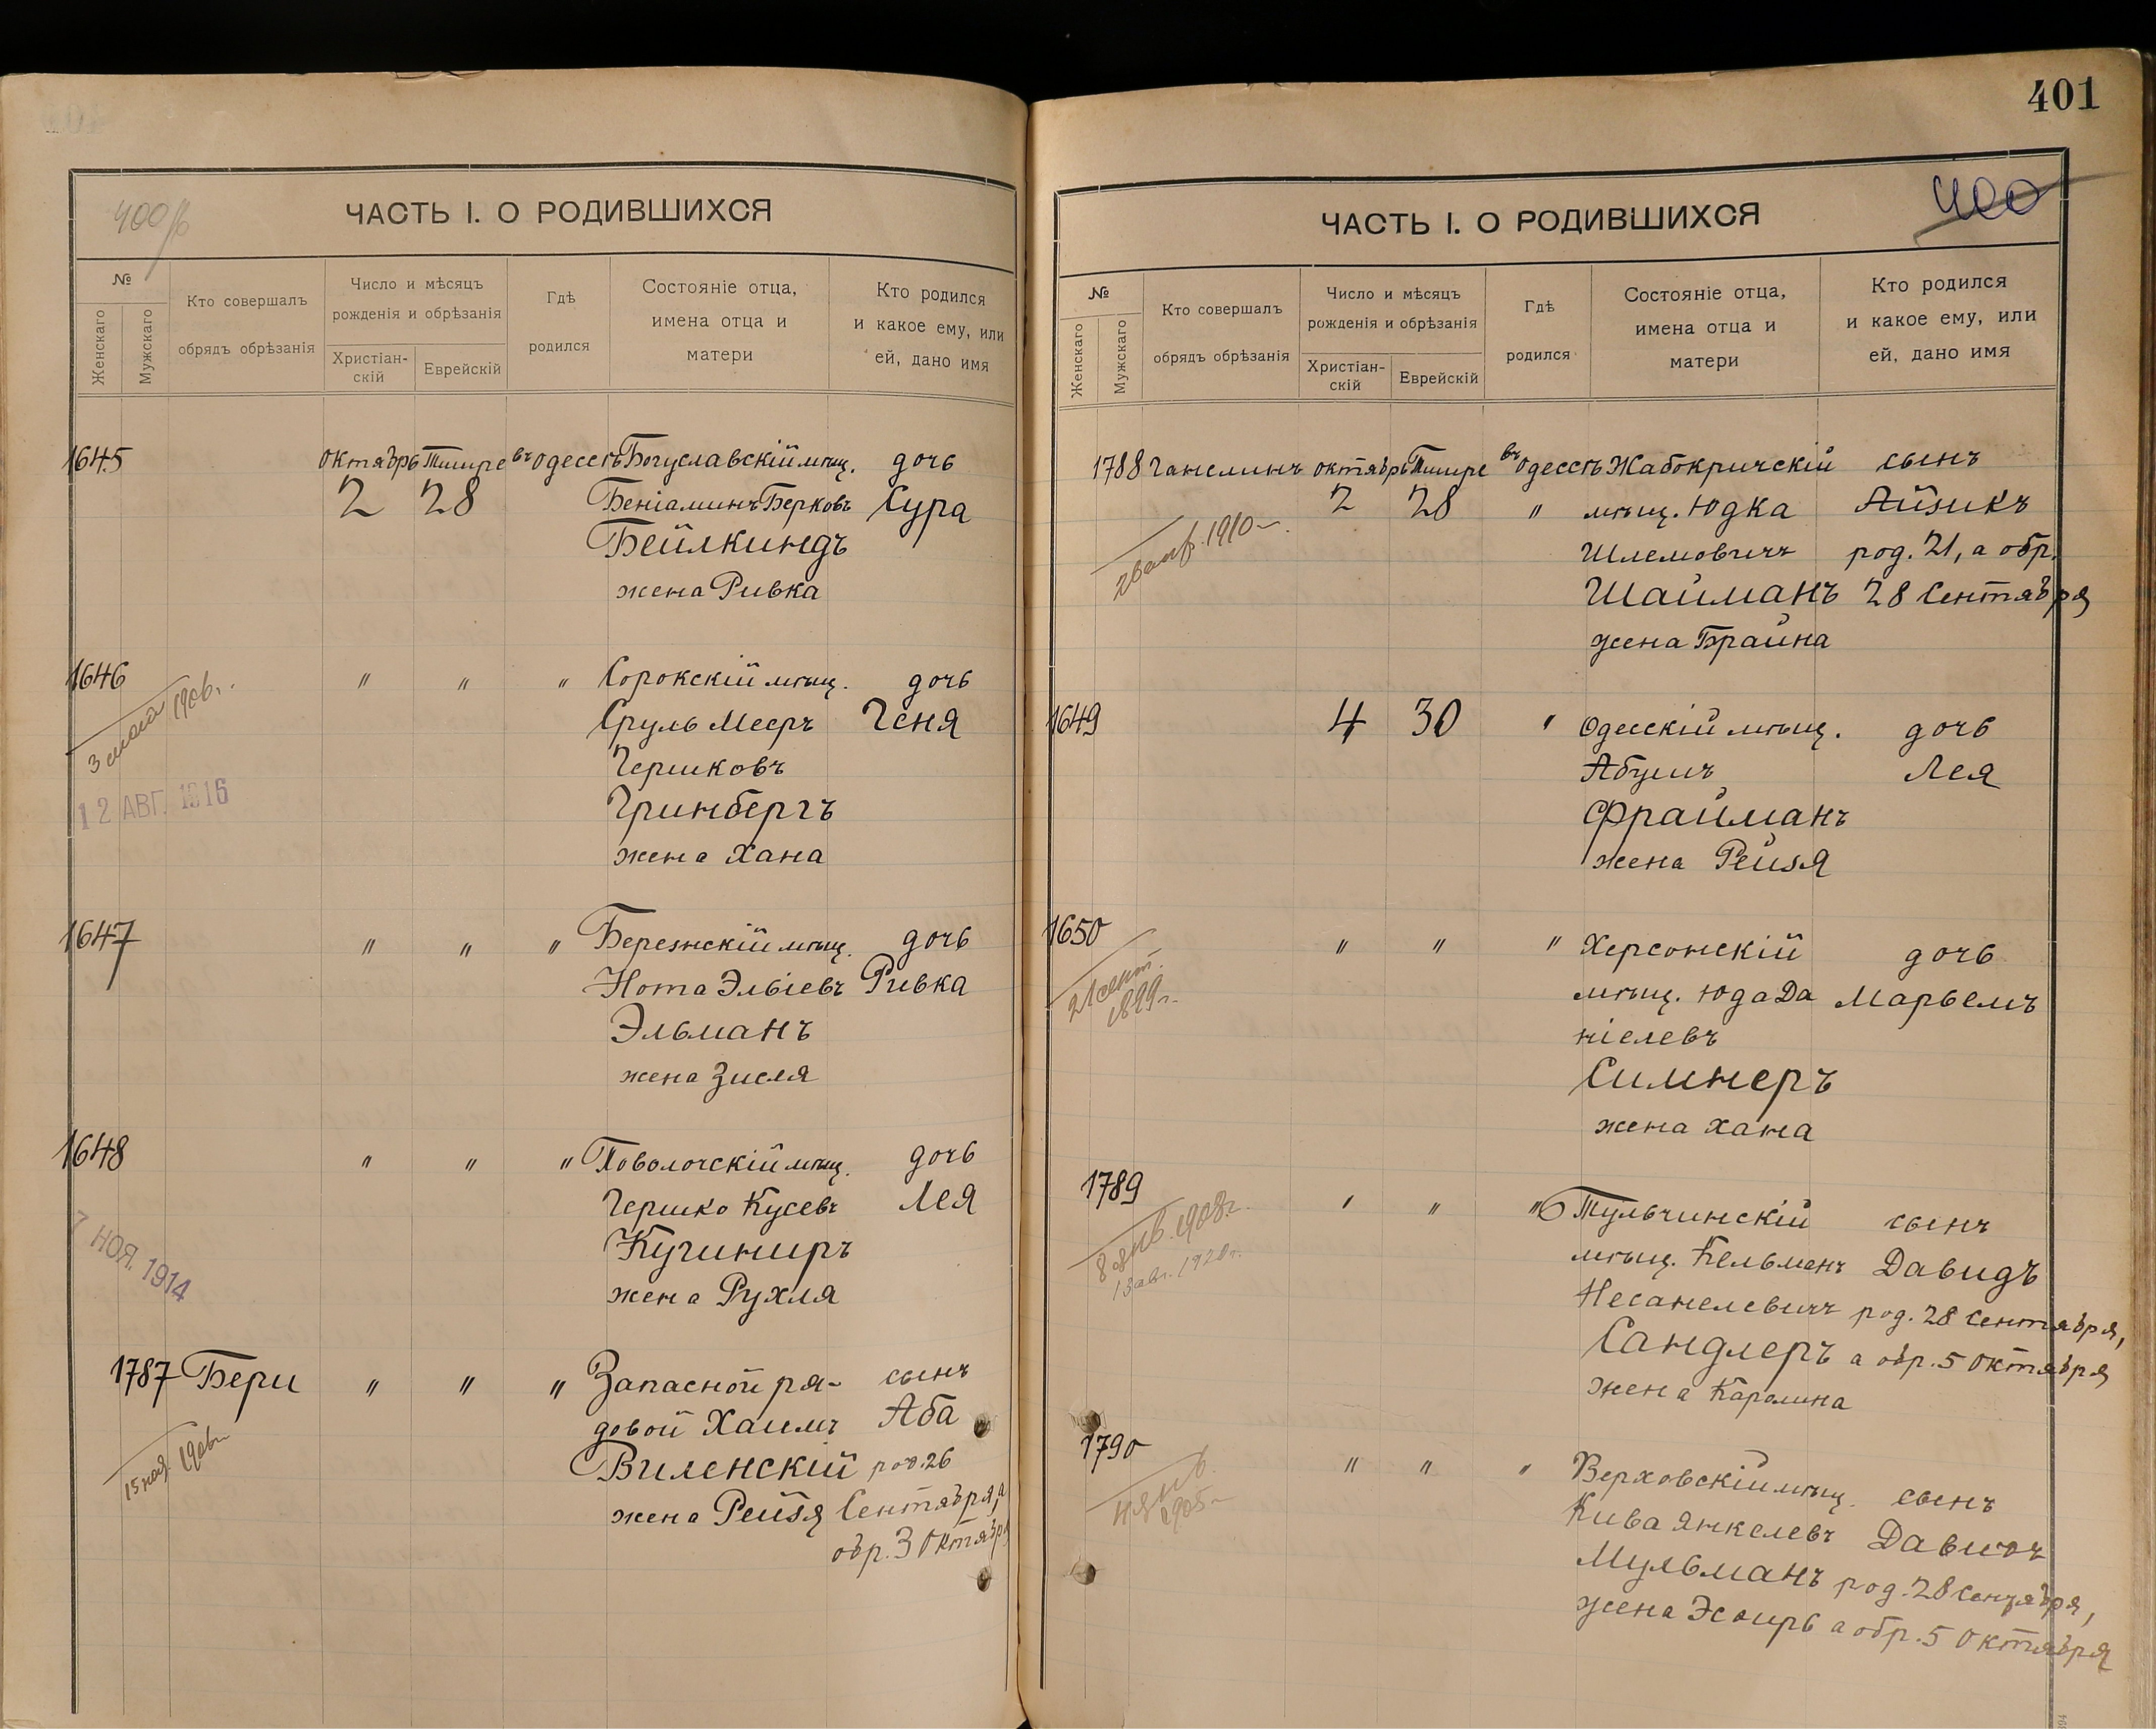 401
400
400 б
ЧАСТЬ I. О РОДИВШИХСЯ
№
Женскаго
Мужскаго
Кто совершалъ
обрядъ обрѣзанія
Число и мѣсяцъ
рожденія и обрѣзанія
Христіан-
скій
Еврейскій
Гдѣ
родился
Состояніе отца,
имена отца и
матери
Кто родился
и какое ему, или
ей, дано имя
1645 Октябрь Тишре въ Одессѣ Богуславскій мѣщ. дочь
2 28 Беніаминъ Берковъ Сура
Бейлкиндъ
жена Ривка
1646 " " " Сорокскій мѣщ. дочь
3 мая 1906 г. Сруль Мееръ Геня
Гершковъ
12 АВГ. 1916 Гринбергъ
жена Хана
1647 " " " Березнскій мѣщ. дочь
Нота Эльіевъ Ривка
Эльманъ
жена Зисля
1648 " " " Поволочскій мѣщ. дочь
7 НОЯ. 1914 Гершко Кусевъ Лея
Кучиниръ
жена Рухля
1787 Бери " " " Запасной ря- сынъ
довой Хаимъ Аба
15 ноя. 1906 г. Виленскій род. 26
жена Рейзя Сентября, а
обр. 3 Октября
ЧАСТЬ I. О РОДИВШИХСЯ
№
Женскаго
Мужскаго
Кто совершалъ
обрядъ обрѣзанія
Число и мѣсяцъ
рожденія и обрѣзанія
Христіан-
скій
Еврейскій
Гдѣ
родился
Состояніе отца,
имена отца и
матери
Кто родился
и какое ему, или
ей, дано имя
1788 Гансминъ октябрь Тишре въ Одессѣ Жабокричскій сынъ
2 28 " мѣщ. Юдка Айзикъ
1910 г. Шлемовичъ род. 21, а обр.
Шайманъ 28 Сентября
жена Брайна
1649 4 30 " Одесскій мѣщ. дочь
Абушъ Лея
Фрайманъ
жена Рейзя
1650 " " " Херсонскій дочь
21 сент. мѣщ. Юда Да Марьемъ
1899 г. ніелевъ
Симнеръ
жена Хана
1789 " " " Тульчинскій сынъ
8 янв. 1908 г. мѣщ. Кельманъ Давидъ
13 авг. 1920 г. Несанелевичъ род. 28 Сентября,
Сандлеръ а обр. 5 Октября
жена Каролина
1790 " " " Верховскій мѣщ. сынъ
4 янв. Кива Янкелевъ Давидъ
1905 г. Мульманъ род. 28 Сентября,
жена Эсѳирь а обр. 5 Октября